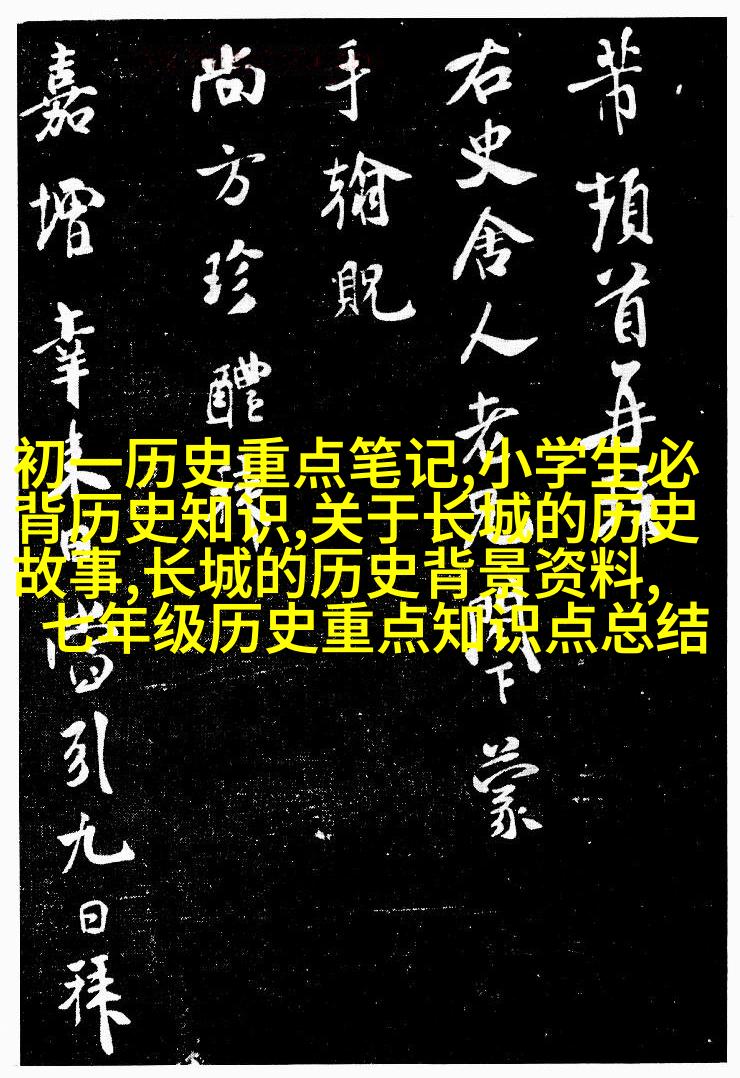 芾頓首再拜
右史舍人老兄閣下蒙
手翰貺
尚方珍醴
嘉增幸來日當引九日拜
初一历史重点笔记,小学生必
背历史知识,关于长城的历史
故事,长城的历史背景资料,
七年级历史重点知识点总结